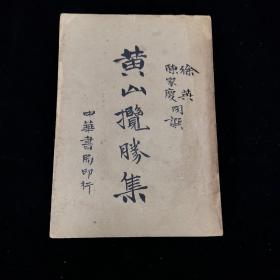 徐英
陳家慶同譔
黄山攬勝集
中華書局印行